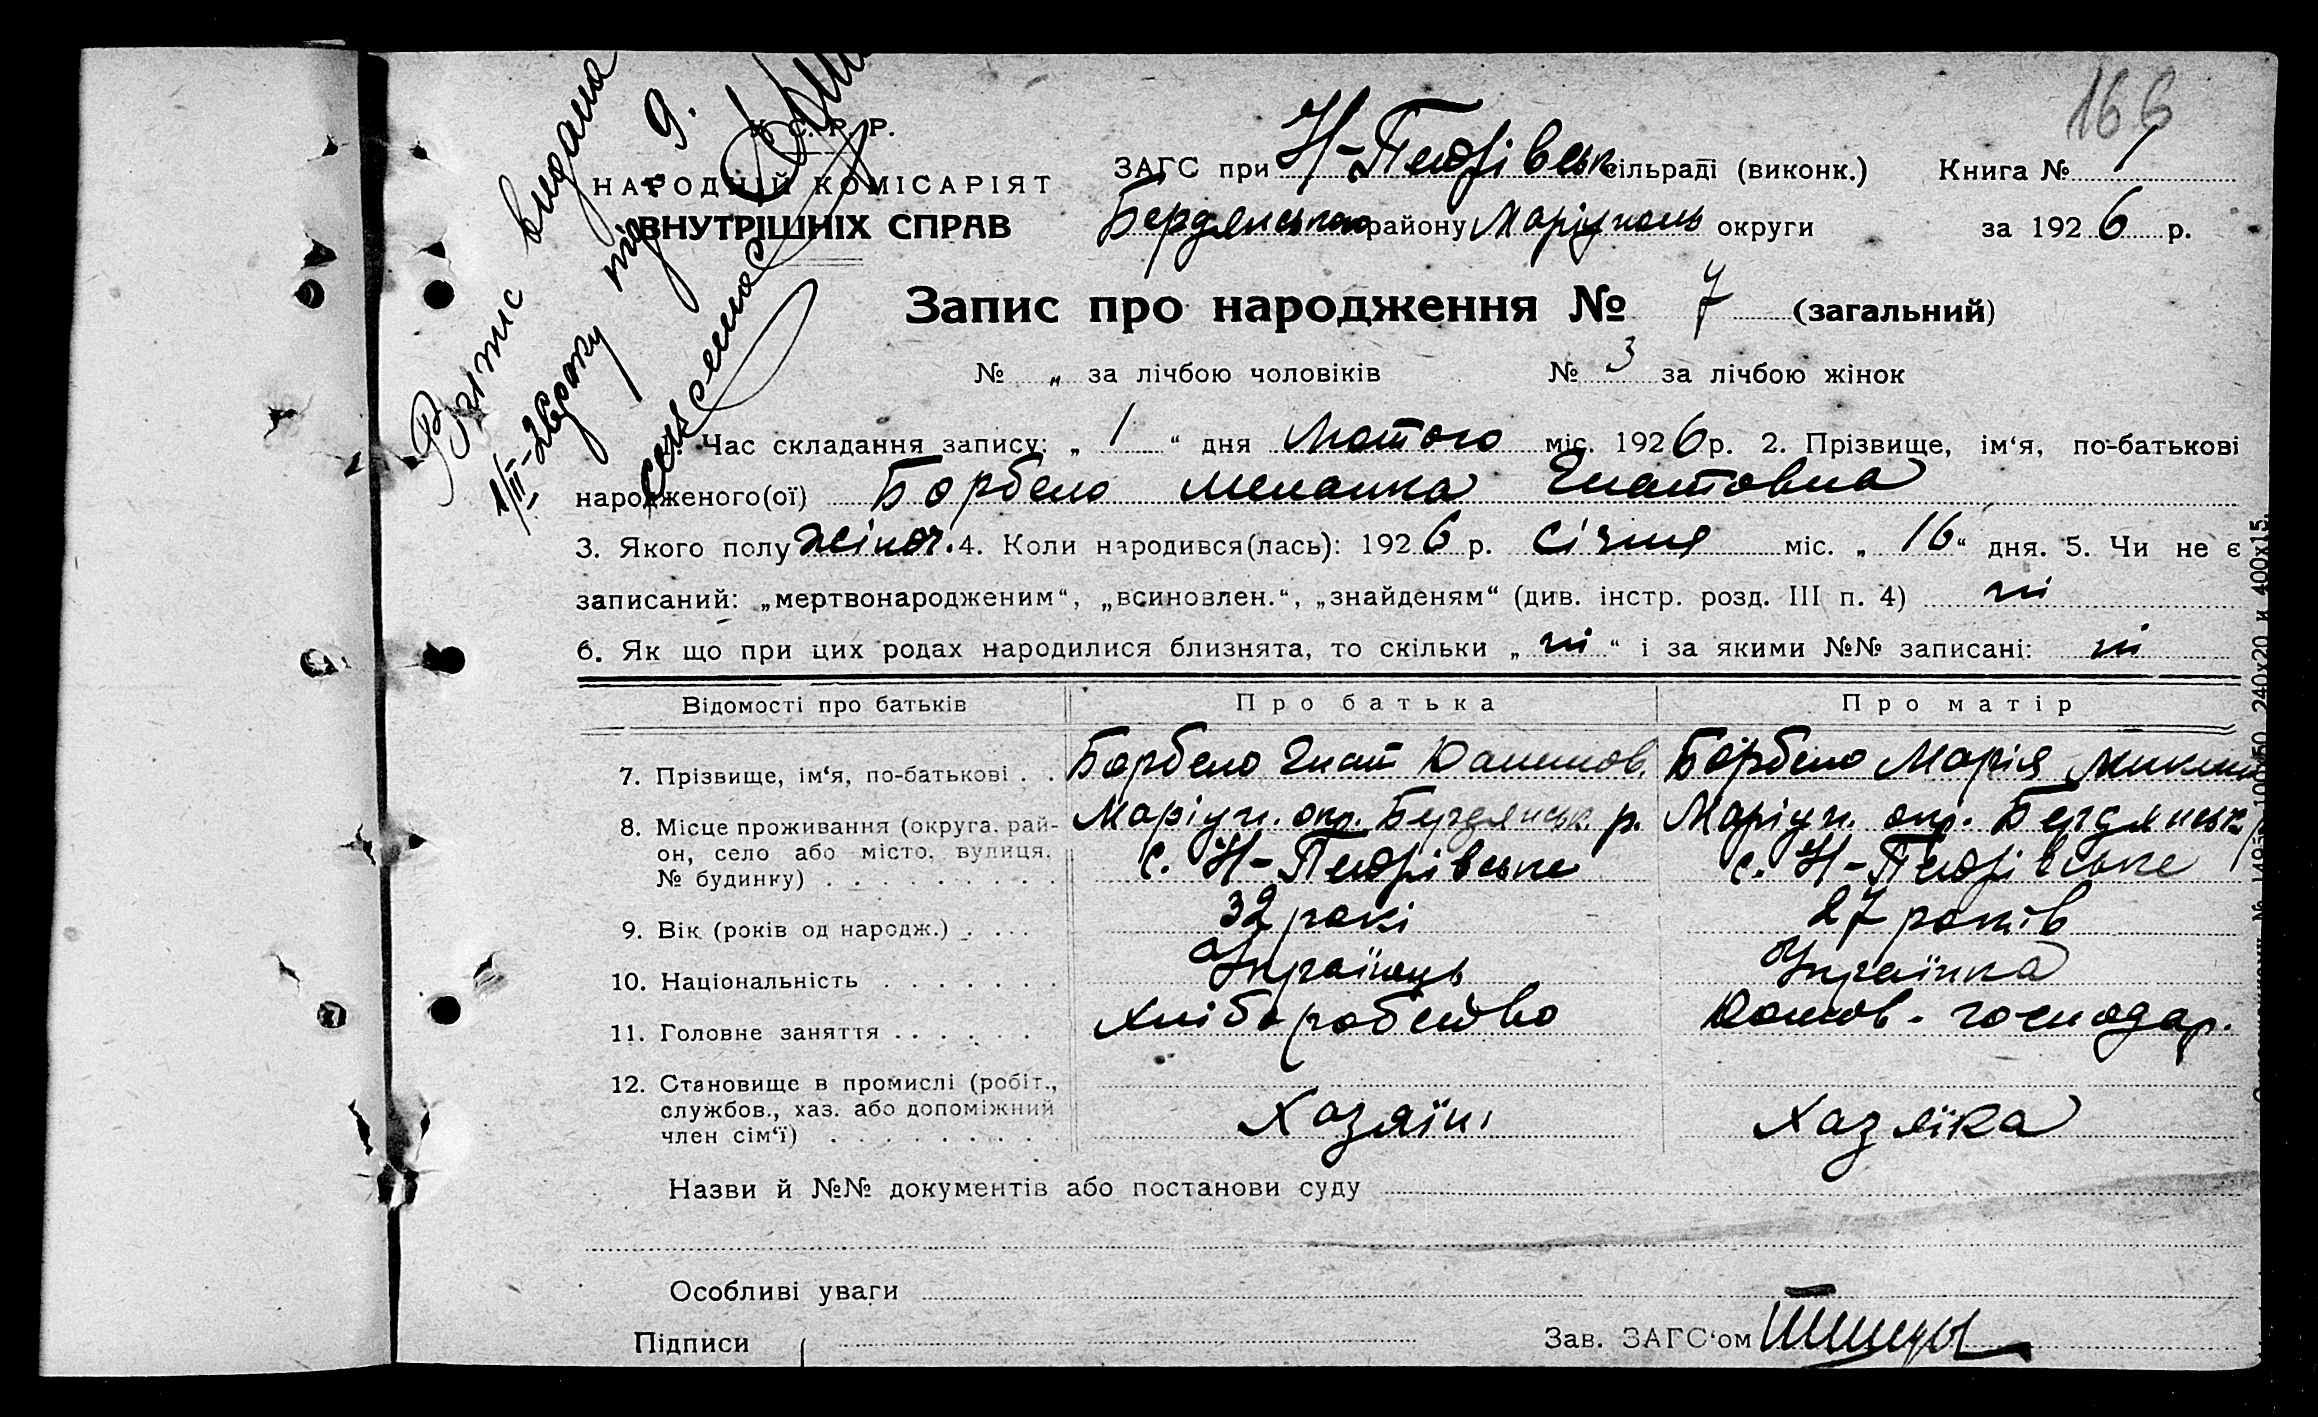 166
У. С. Р. Р.
НАРОДНІЙ КОМІСАРІЯТ
ВНУТРІШНІХ СПРАВ
ЗАГС при Н-Петрівськ сільраді (виконк.) Книга № 1
Бердянського району Маріуполь округи за 1926 р.
Витис видана
1/III-26 року під 9.
Запис про народження № 7 (загальний)
№ „ за лічбою чоловіків № 3 за лічбою жінок
Час складання запису: „ 1 “ дня Лютого міс. 1926 р. 2. Прізвище, ім‘я, по-батькові
народженого(ої) Борбело Меланка Гнатовна
3. Якого полу жіноч. 4. Коли народився(лась): 1926 р. Січня міс. „ 16 “ дня. 5. Чи не є
записаний: „мертвонародженим“, „всиновлен.“, „знайденям“ (див. інстр. розд. III п. 4) ні
6. Як що при цих родах народилися близнята, то скільки „ ні “ і за якими №№ записані: ні
Відомості про батьків Про батька Про матір
7. Прізвище, ім‘я, по-батькові . . Борбело Гнат Борбело Марія
8. Місце проживання (округа. рай- Маріуп. окр. Бердянськ. р. Маріуп. окр. Бердянськ. р
он, село або місто, вулиця, с. Н-Петрівське с. Н-Петрівське
№ будинку) . . . . . . . . .
9. Вік (років од народж.) . . . . 32 рокі 27 років
10. Національність . . . . . . . Українець Українка
11. Головне заняття . . . . . . Хліборобство Домов. господар.
12. Становище в промислі (робіт.,
службов., хаз. або допоміжний Хазяїн Хазяїка
член сім‘ї) . . . . . . . . .
Назви й №№ документів або постанови суду
Особливі уваги
Підписи Зав. ЗАГС‘ом